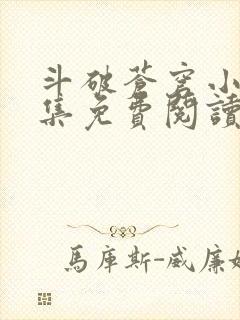 斗破蒼穹小
集免費閱讀
馬庫斯-威廉姆